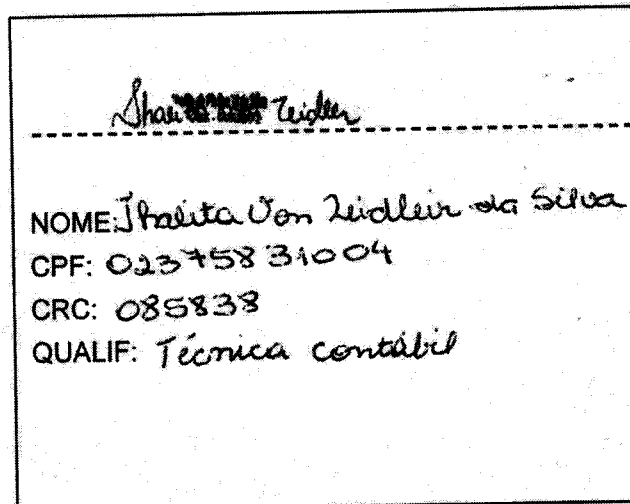 Zeidler
NOME: Thalita Von Zeidleir da Silva
CPF: 02375831004
CRC: 085838
QUALIF: Técnica contábil